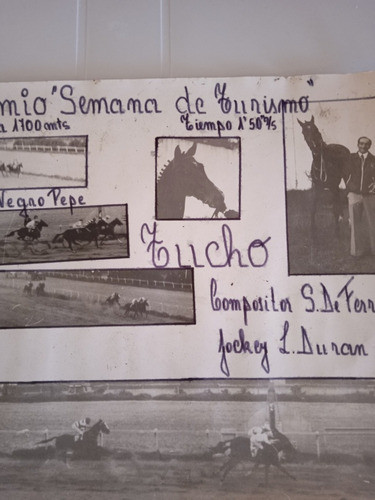 mio "Semana de Turismo"
a 1700 mts
Tiempo 1'50"⅗
Negro Pepe
Tucho
Compositor S. De Ferr
Jockey L. Duran